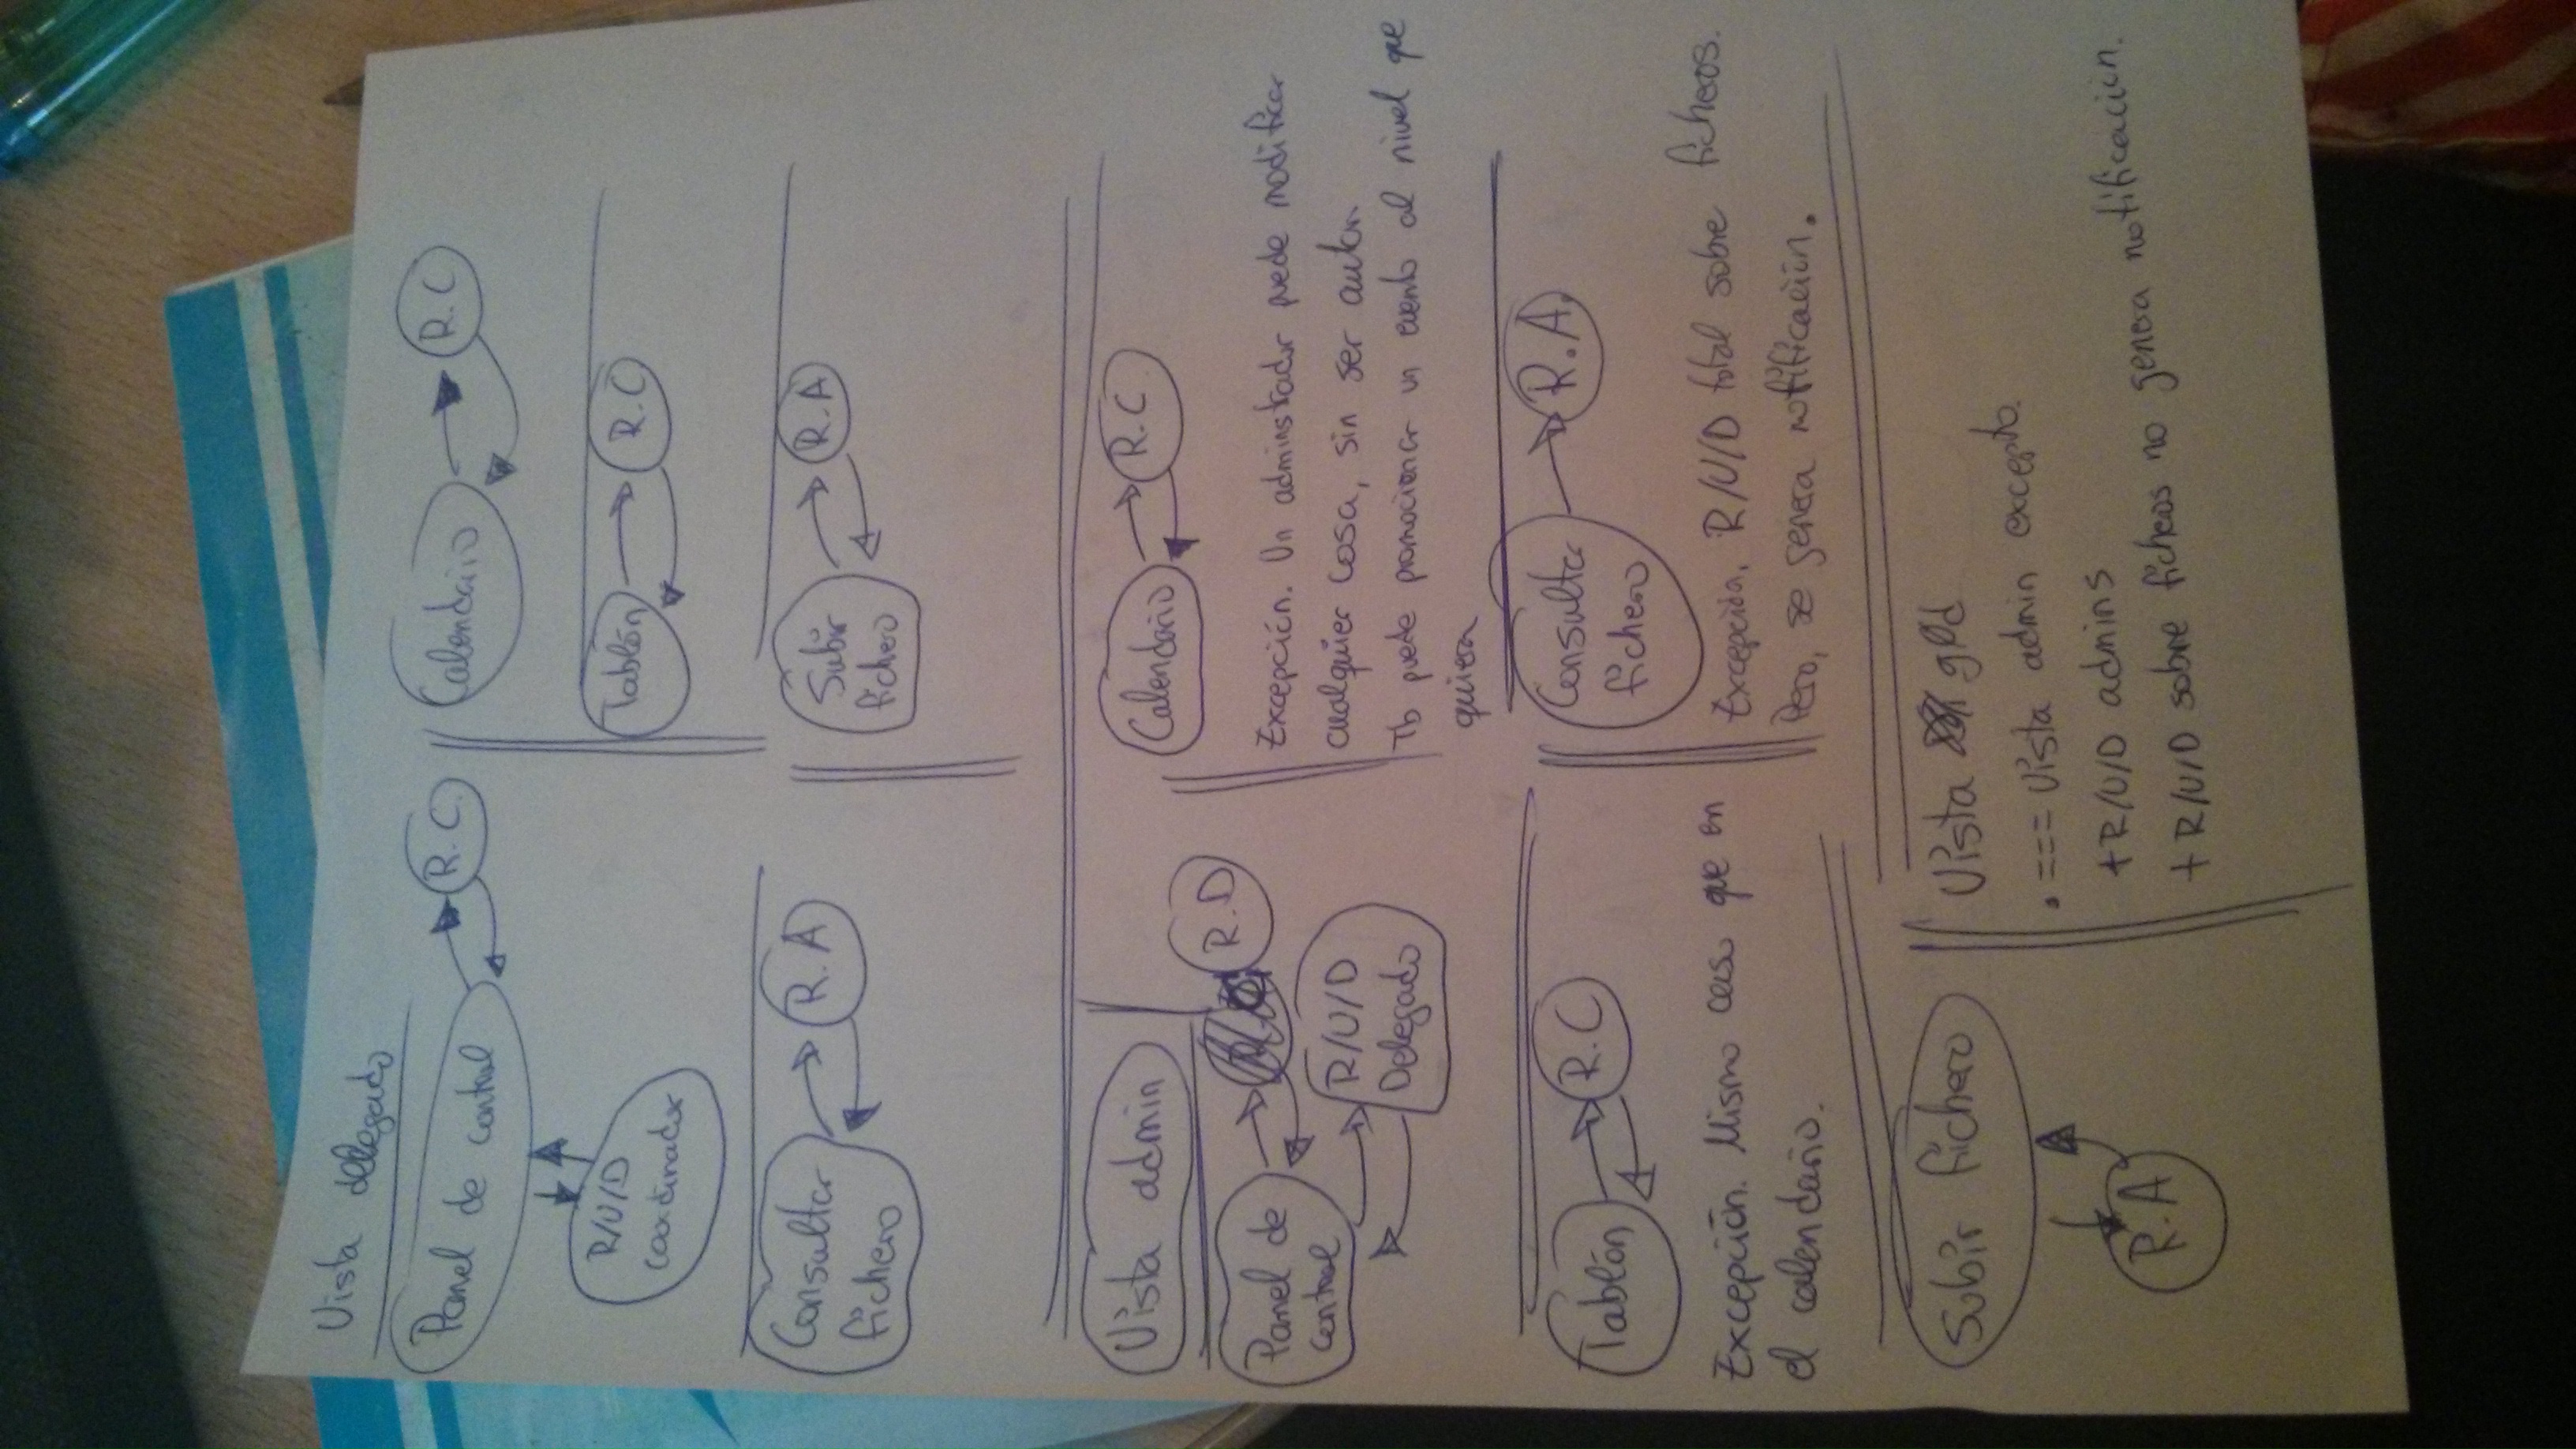 Vista delegado
Panel de control
R.C.
R/U/D
coordinador
Calendario
R.C
Tablón
R.C
Consultar
fichero
R.A
Subir
fichero
R.A
Vista admin
Panel de
control
R.D
R/U/D
Delegado
Calendario
R.C.
Excepción. Un adminstrador puede modificar
cualquier cosa, sin ser autor.
Tb puede promocionar un evento al nivel que
quiera
Tablón
R.C
Excepción. Mismo caso que en
el calendario.
Consultar
fichero
R.A.
Excepción. R/U/D total sobre ficheros.
Pero, se genera notificación.
Subir fichero
R.A
Vista gPd
. === Vista admin excepto.
+R/U/D admins
+R/U/D sobre ficheros no genera notificación.